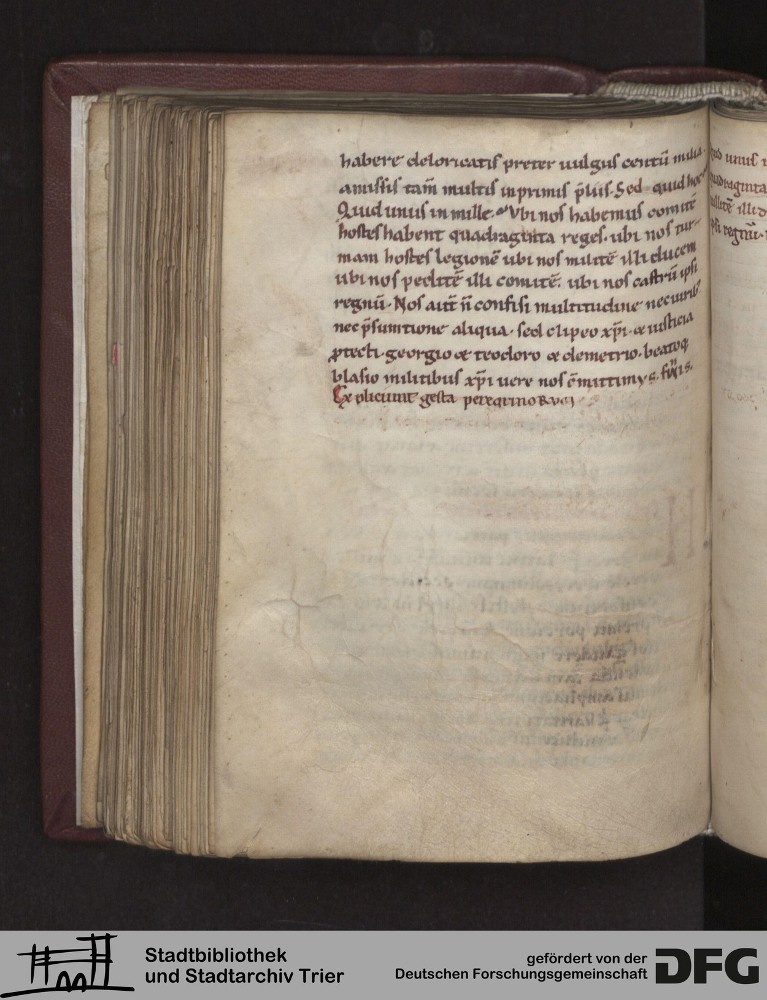 habere deloricatis preter uulgus centū milia.
amissis tam̄ multis inprimis p̄liis. Sed quid hoc
Quid unus in mille. Vbi nos habemus comitē
hostes habent quadraginta reges. ubi nos tur-
mam hostes legionē ubi nos militē illi ducem
ubi nos peditē illi comitē. ubi nos castrū ipsi
regnū. Nos aut̄ n̄ confisi multitudine nec uirib;
nec p̄sumtione aliqua. sed clipeo xp̄i. & iusticia
ꝓtecti. georgio & teodoro & demetrio. beatoq;
blasio militibus xp̄i uere nos cōmittimus.
Expliciunt gesta peregrinoꝝ
Stadtbibliothek
und Stadtarchiv Trier
gefördert von der
Deutschen Forschungsgemeinschaft
DFG